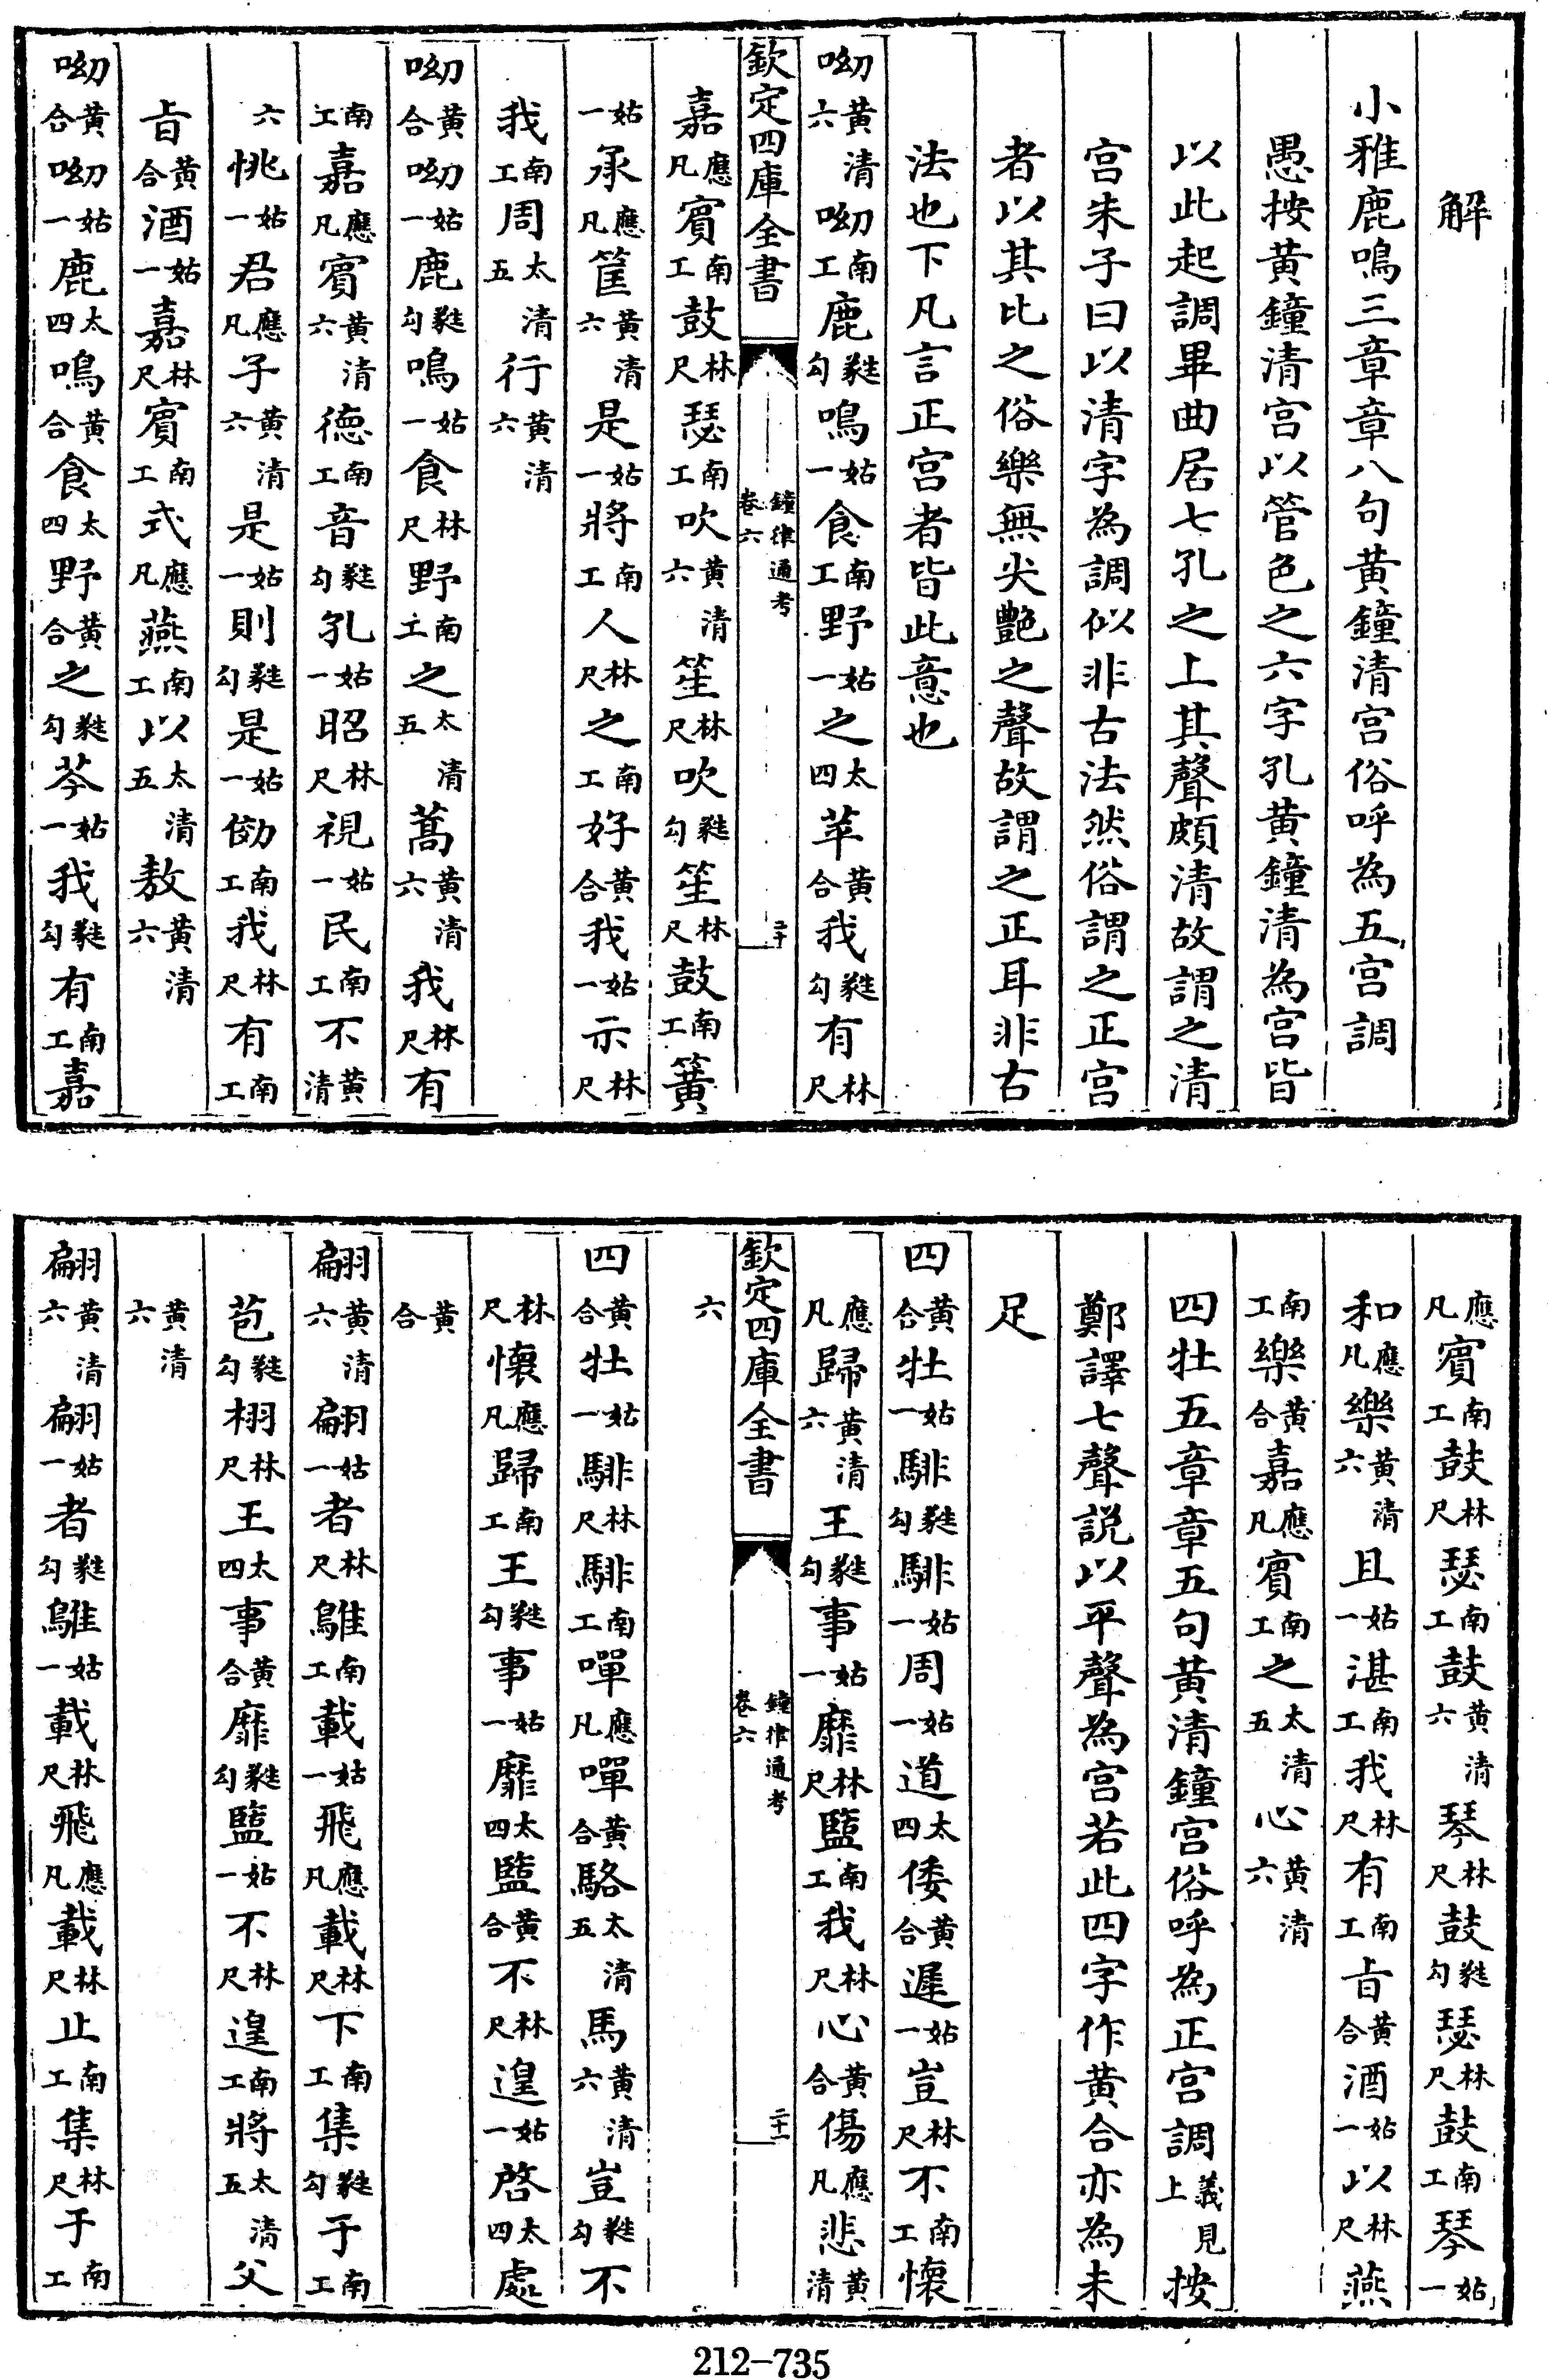 解
小雅鹿鳴三章章八句黄鐘清宫俗呼為五宫調
愚按黄鐘清宫以管色之六字孔黄鐘清為宫皆
以此起調畢曲居七孔之上其聲頗清故謂之清
宫朱子曰以清字為調似非古法然俗謂之正宫
者以其比之俗樂無尖艷之聲故謂之正耳非古
法也下凡言正宫者皆此意也
呦黄清六呦南工鹿蕤勾鳴姑一食南工野姑一之太四苹黄合我蕤勾有林尺
欽定四庫全書 鐘律通考卷六 二十
嘉應凡賓南工鼓林尺瑟南工吹黄清六笙林尺吹蕤勾笙林尺鼓南工簧
姑一承應凡筐黄清六是姑一將南工人林尺之南工好黄合我姑一示林尺
我南工周太清五行黄清六
呦黄合呦姑一鹿蕤勾鳴姑一食林尺野南工之太清五蒿黄清六我林尺有
南工嘉應凡賓黄清六德南工音蕤勾孔姑一昭林尺視姑一民南工不黄清
六恌姑一君應凡子黄清六是姑一則蕤勾是姑一傚南工我林尺有南工
旨黄合酒姑一嘉林尺賓南工式應凡燕南工以太清五敖黄清六
呦黄合呦姑一鹿太四鳴黄合食太四野黄合之蕤勾芩姑一我蕤勾有南工嘉
應凡賓南工鼓林尺瑟南工鼓黄清六琴林尺鼓蕤勾瑟林尺鼓南工琴姑一
和應凡樂黄清六且姑一湛南工我林尺有南工旨黄合酒姑一以林尺燕
南工樂黄合嘉應凡賓南工之太清五心黄清六
四牡五章章五句黄清鐘宫俗呼為正宫調義見上按
鄭譯七聲説以平聲為宫若此四字作黄合亦為未
足
四黄合牡姑一騑蕤勾騑姑一周姑一道太四倭黄合遲姑一豈林尺不南工懷
應凡歸黄清六王蕤勾事姑一靡林尺盬南工我林尺心黄合傷應凡悲黄清
欽定四庫全書 鐘律通考卷六 二十一
六
四黄合牡姑一騑林尺騑南工嘽應凡嘽黄合駱太清五馬黄清六豈蕤勾不
林尺懷應凡歸南工王蕤勾事姑一靡太四盬黄合不林尺遑姑一啓太四處
黄合
翩黄清六翩姑一者林尺鵻南工載姑一飛應凡載林尺下南工集蕤勾于南工
苞蕤勾栩林尺王太四事黄合靡蕤勾盬姑一不林尺遑南工將太清五父
黄清六
翩黄清六翩姑一者蕤勾鵻姑一載林尺飛應凡載林尺止南工集林尺于南工
212-735